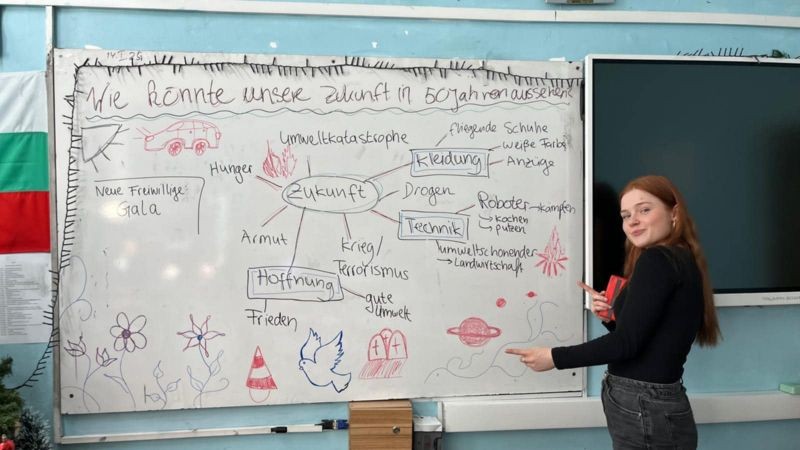 Wie könnte unsere Zukunft in 50 Jahren aussehen?
fliegende Schuhe
Umweltkatastrophe
weiße Farbe
Kleidung
Anzüge
Hunger
Neue Freiwillige:
Gala
Zukunft
Drogen
Roboter
kämpfen
kochen
putzen
Technik
Armut
Krieg/
Terrorismus
umweltschonender
Landwirtschaft
Hoffnung
gute
Umwelt
Frieden